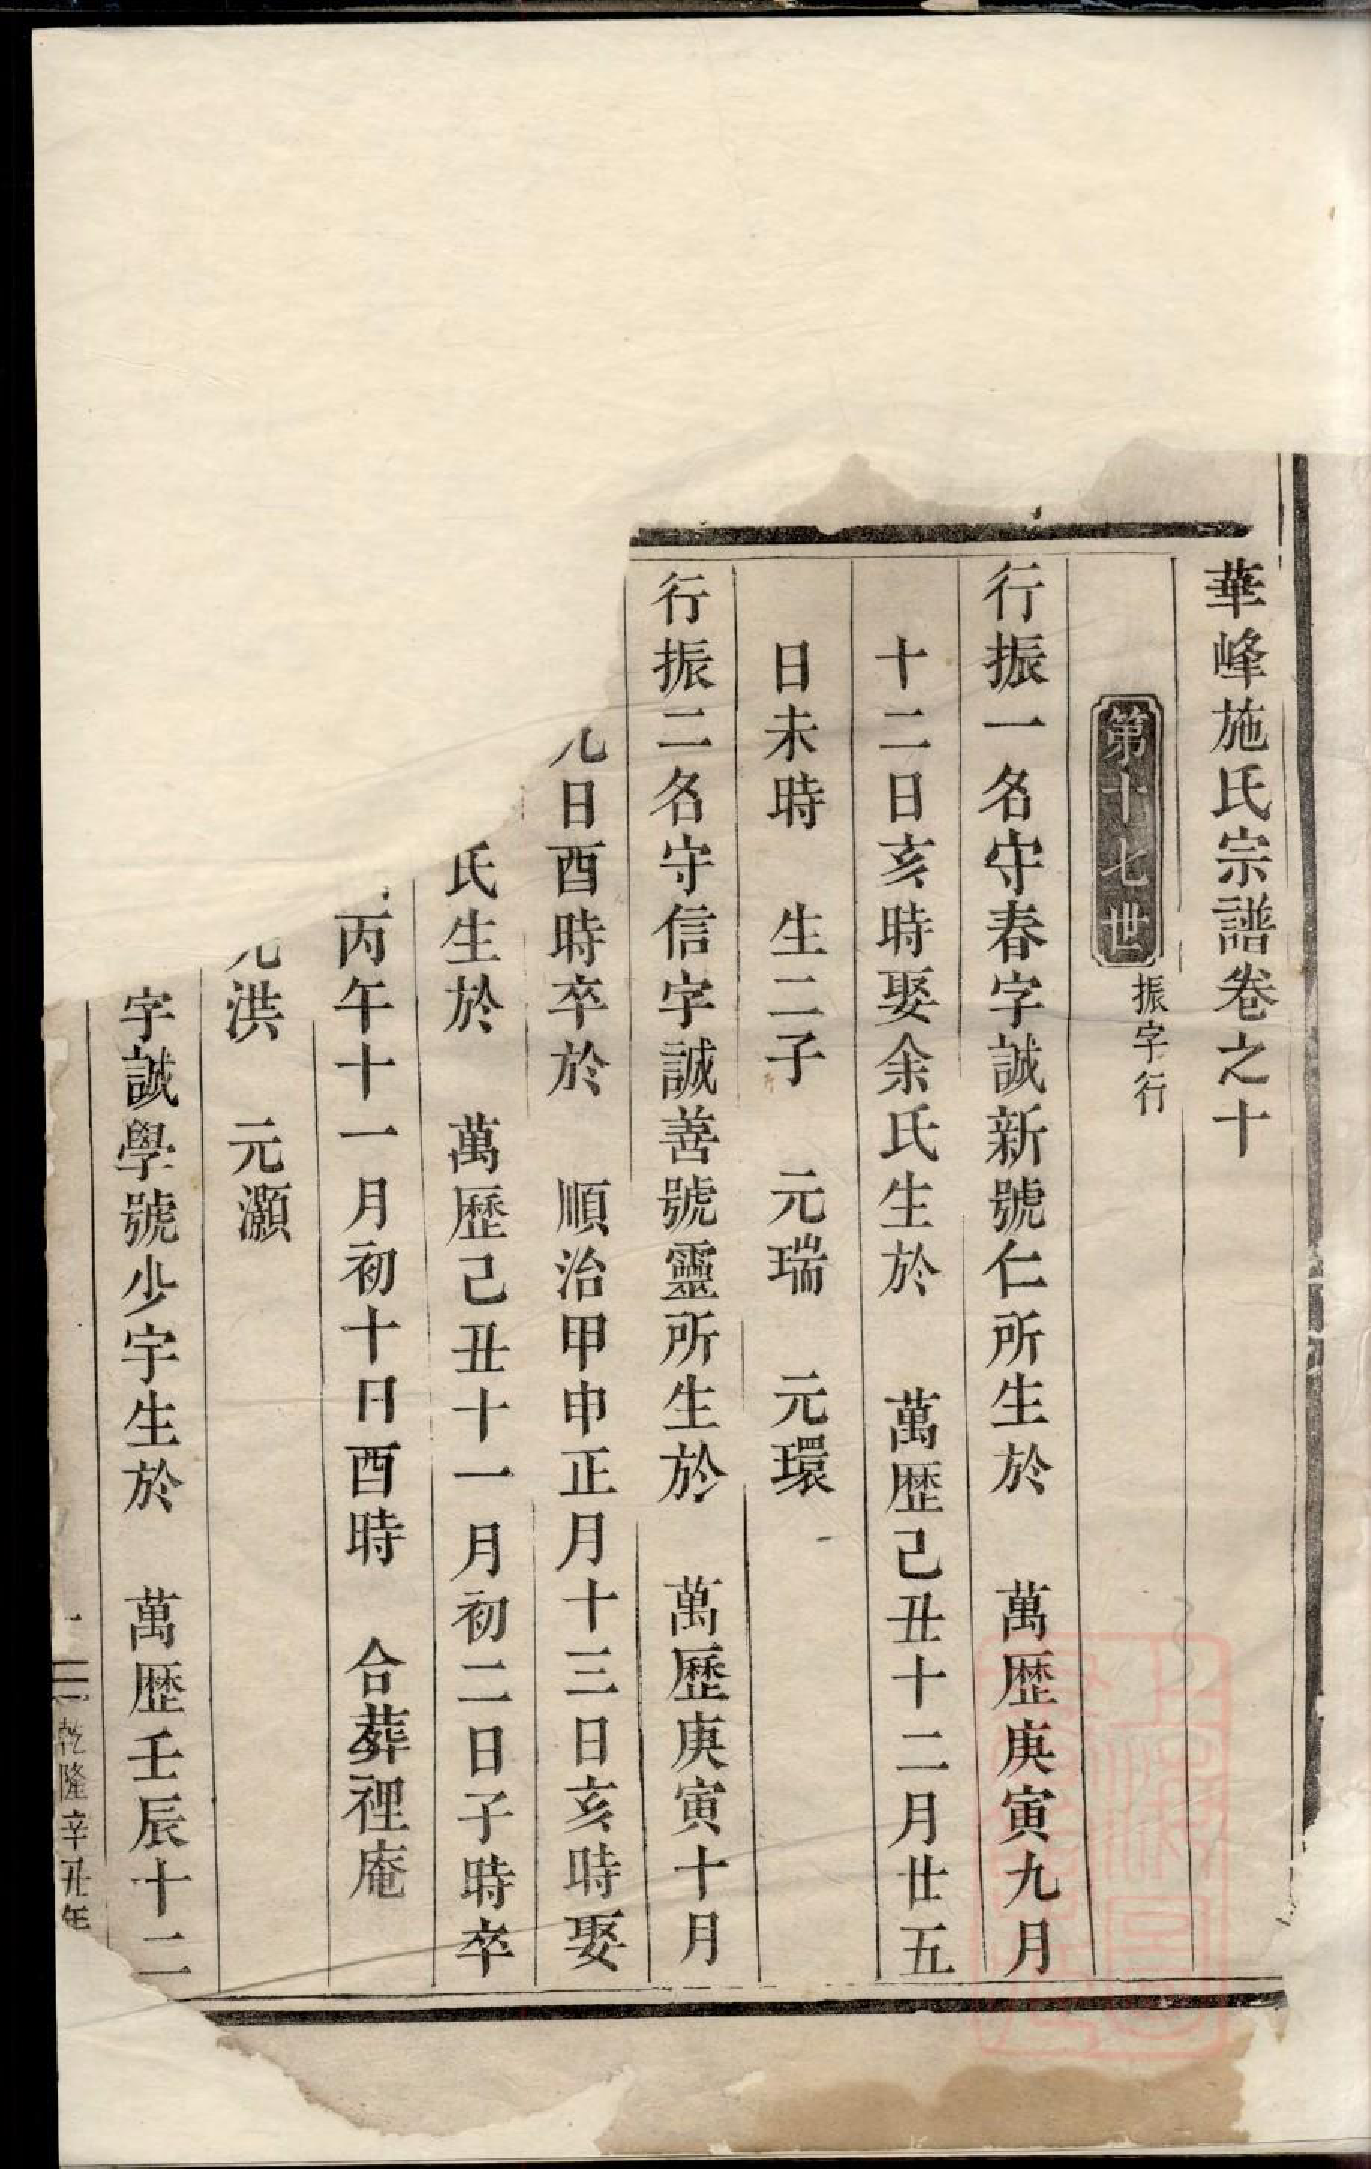 華峰施氏宗譜卷之十
第十七世 振字行
行振一名守春字誠新號仁所生於 萬歷庚寅九月
十二日亥時娶余氏生於 萬歷己丑十二月廿五
日未時 生二子 元瑞 元環
行振二名守信字誠善號靈所生於 萬歷庚寅十月
日酉時卒於 順治甲申正月十三日亥時娶
氏生於 萬歷己丑十一月初二日子時卒
丙午十一月初十日酉時 合葬裡庵
元洪 元灝
字誠學號少宇生於 萬歷壬辰十二
乾隆辛丑年